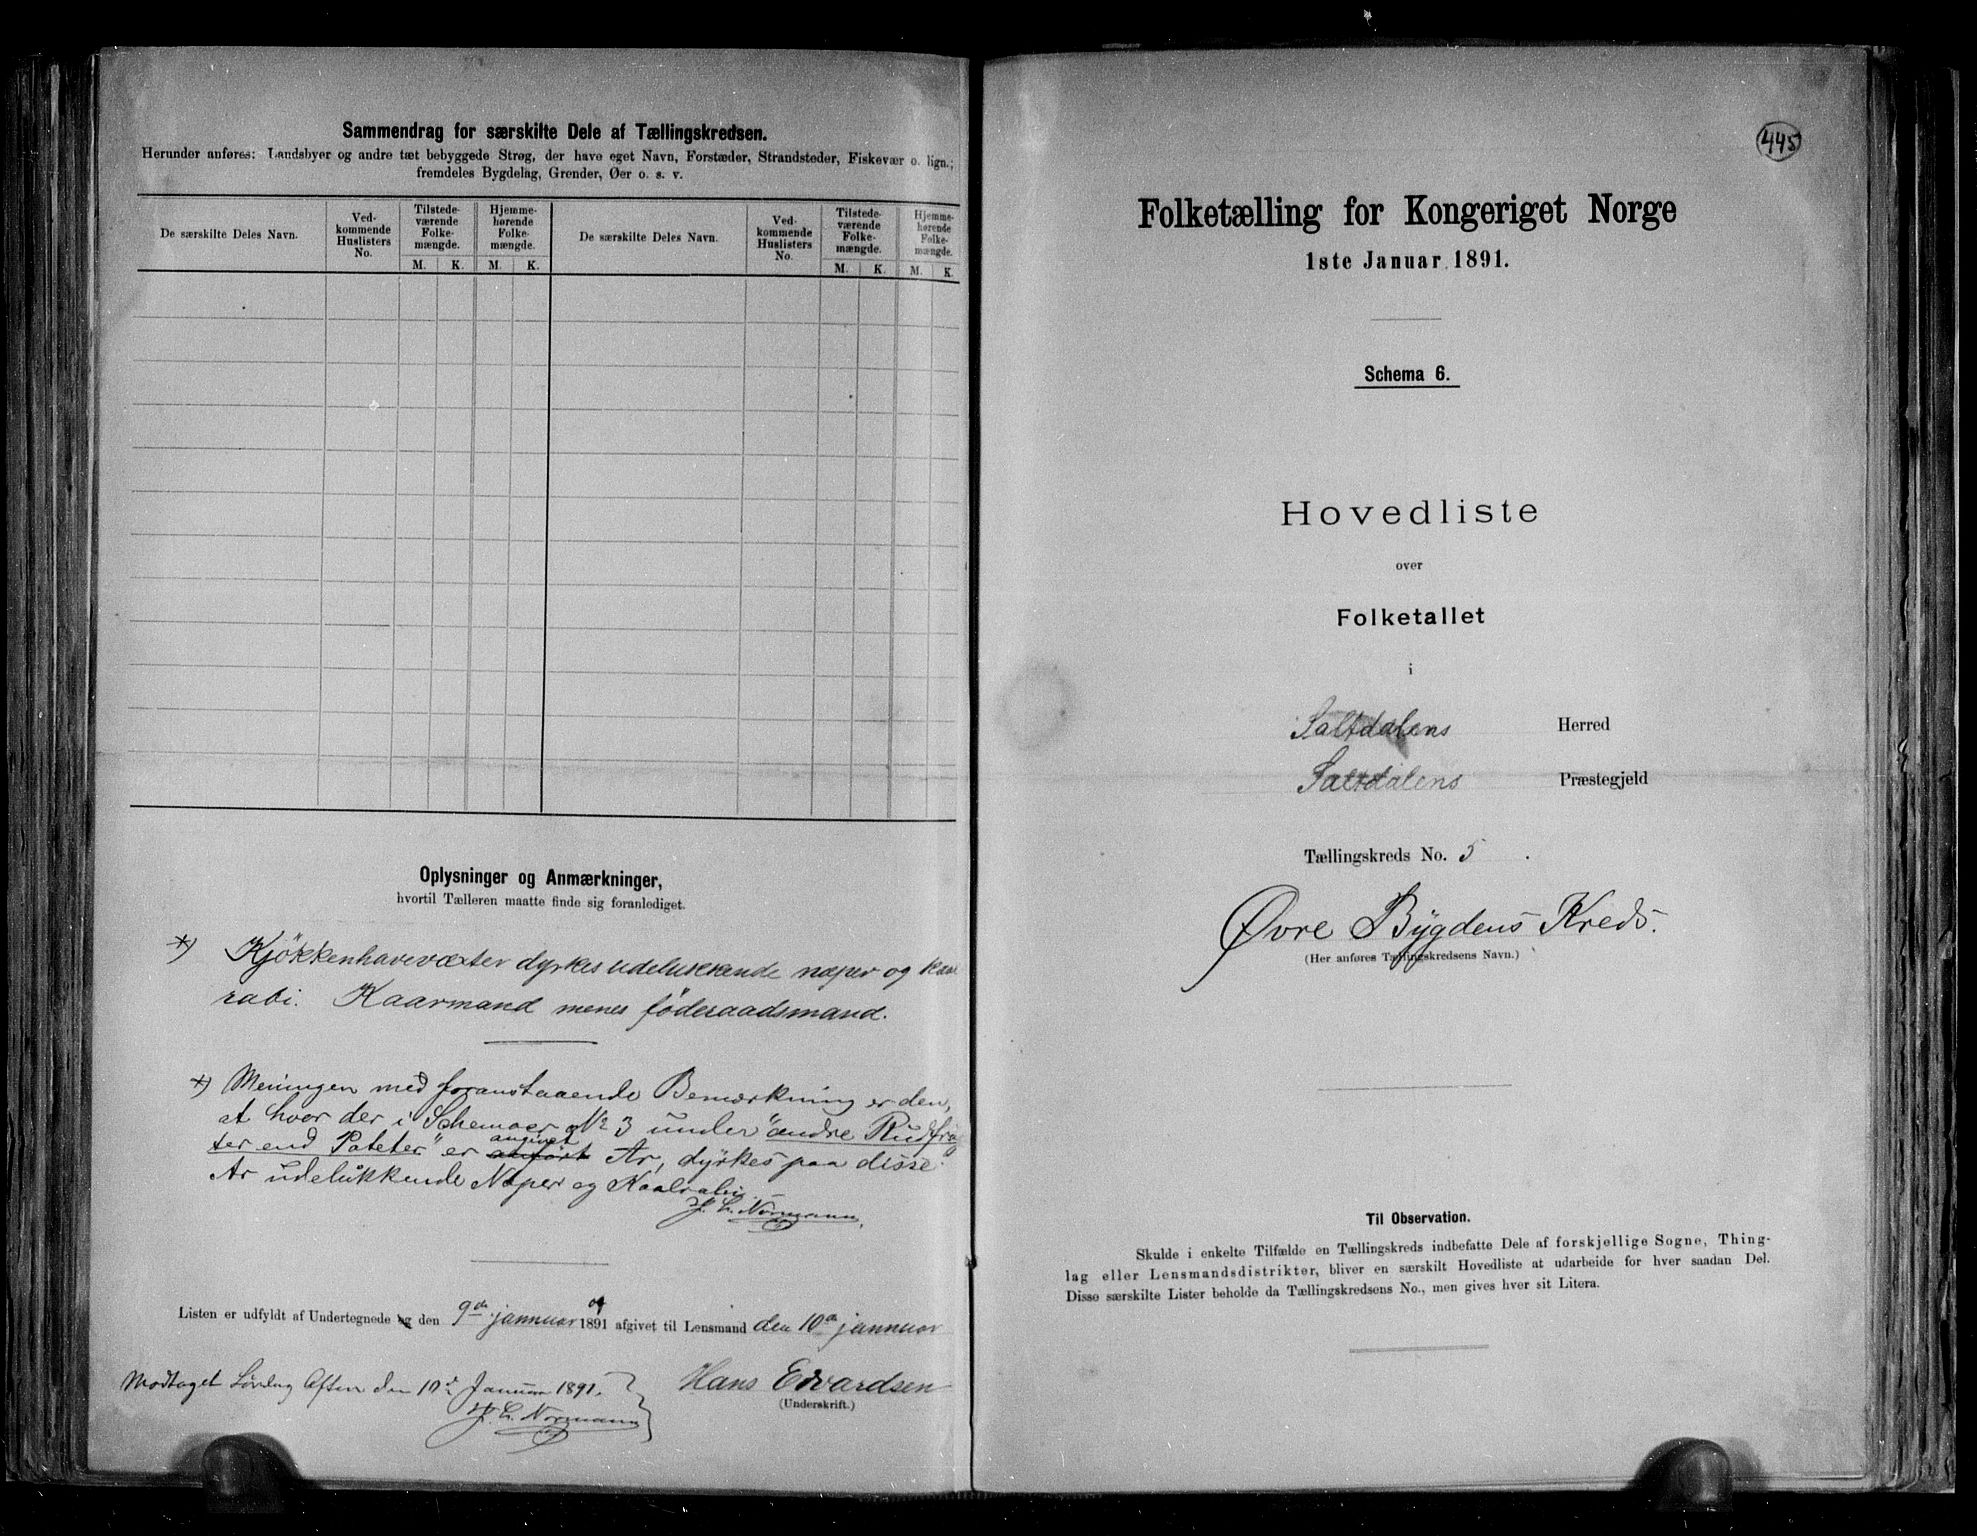 Sammendrag for særskilte Dele af Tællingskredsen.
Herunder anføres: Landsbyer og andre tæt bebyggede Strøg, der have eget Navn, Forstæder, Strandsteder, Fiskevær o. lign.;
fremdeles Bygdelag, Grender, Øer o. s. v.
De særskilte Deles Navn.
Ved-
kommende
Huslisters
No.
Tilstede-
værende
Folke-
mængde.
Hjemme-
hørende
Folke-
mængde.
De særskilte Deles Navn.
Ved-
kommende
Huslisters
No.
Tilstede-
værende
Folke-
mængde.
Hjemme-
hørende
Folke-
mængde.
M. K. M. K. M. K. M. K.
Oplysninger og Anmærkninger,
hvortil Tælleren maatte finde sig foranlediget.
*) Kjökkenhavevæxter dyrkes udelukkende næper og kaa
rabi. Kaarmand menes föderaadsmand.
*) Meningen med foranstaaende Bemærkning er den,
at hvor der i Schemaer No 3 under "andre Rodfrø
ter end Poteter" er anført angivet Ar, dyrkes paa disse
Ar udelukkende Næper og Kaalrabi.
H. L. Normann.
Listen er udfyldt af Undertegnede og den 9de januar 1891 og afgivet til Lensmand den 10de januar
Modtaget Lørdag Aften den 10de Januar 1891.
H. L. Normann
Hans Edvardsen
(Underskrift.)
445
Folketælling for Kongeriget Norge
1ste Januar 1891.
Schema 6.
Hovedliste
over
Folketallet
i
Saltdalens Herred
Saltdalens Præstegjeld
Tællingskreds No. 5.
Øvre Bygdens Kreds.
(Her anføres Tællingskredsens Navn.)
Til Observation.
Skulde i enkelte Tilfælde en Tællingskreds indbefatte Dele af forskjellige Sogne, Thing-
lag eller Lensmandsdistrikter, bliver en særskilt Hovedliste at udarbeide for hver saadan Del.
Disse særskilte Lister beholde da Tællingskredsens No., men gives hver sit Litera.